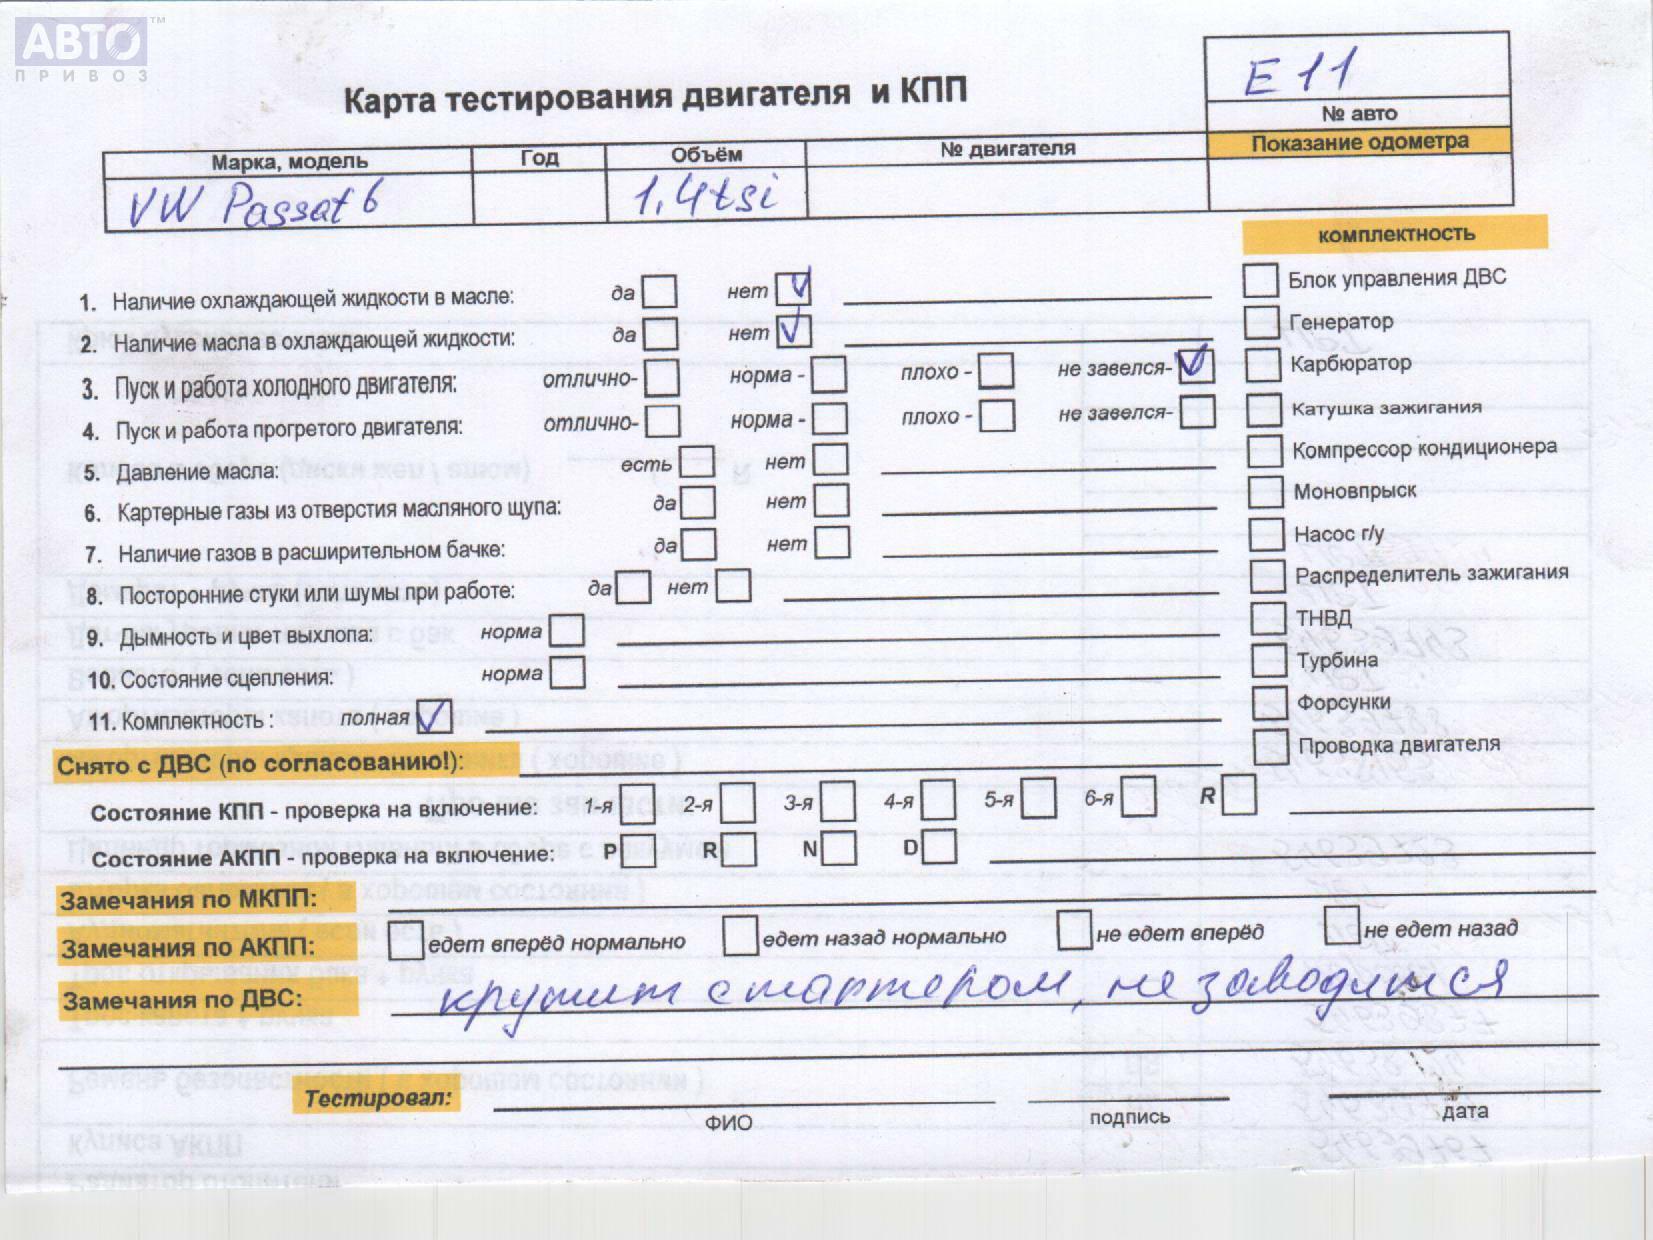 АВТО™
ПРИВОЗ
Карта тестирования двигателя и КПП
E11
№ авто
Марка, модель Год Объём № двигателя Показание одометра
VW Passat 6 1.4tsi
комплектность
1. Наличие охлаждающей жидкости в масле: да нет Блок управления ДВС
2. Наличие масла в охлаждающей жидкости: да нет Генератор
3. Пуск и работа холодного двигателя: отлично- норма - плохо - не завелся- Карбюратор
4. Пуск и работа прогретого двигателя: отлично- норма - плохо - не завелся- Катушка зажигания
5. Давление масла: есть нет Компрессор кондиционера
6. Картерные газы из отверстия масляного щупа: да нет Моновпрыск
7. Наличие газов в расширительном бачке: да нет Насос г/у
8. Посторонние стуки или шумы при работе: да нет Распределитель зажигания
9. Дымность и цвет выхлопа: норма ТНВД
10. Состояние сцепления: норма Турбина
11. Комплектность : полная Форсунки
Снято с ДВС (по согласованию!): Проводка двигателя
Состояние КПП - проверка на включение: 1-я 2-я 3-я 4-я 5-я 6-я R
Состояние АКПП - проверка на включение: P R N D
Замечания по МКПП:
Замечания по АКПП: едет вперёд нормально едет назад нормально не едет вперёд не едет назад
Замечания по ДВС: крутит стартером, не заводится
Тестировал:
ФИО подпись дата